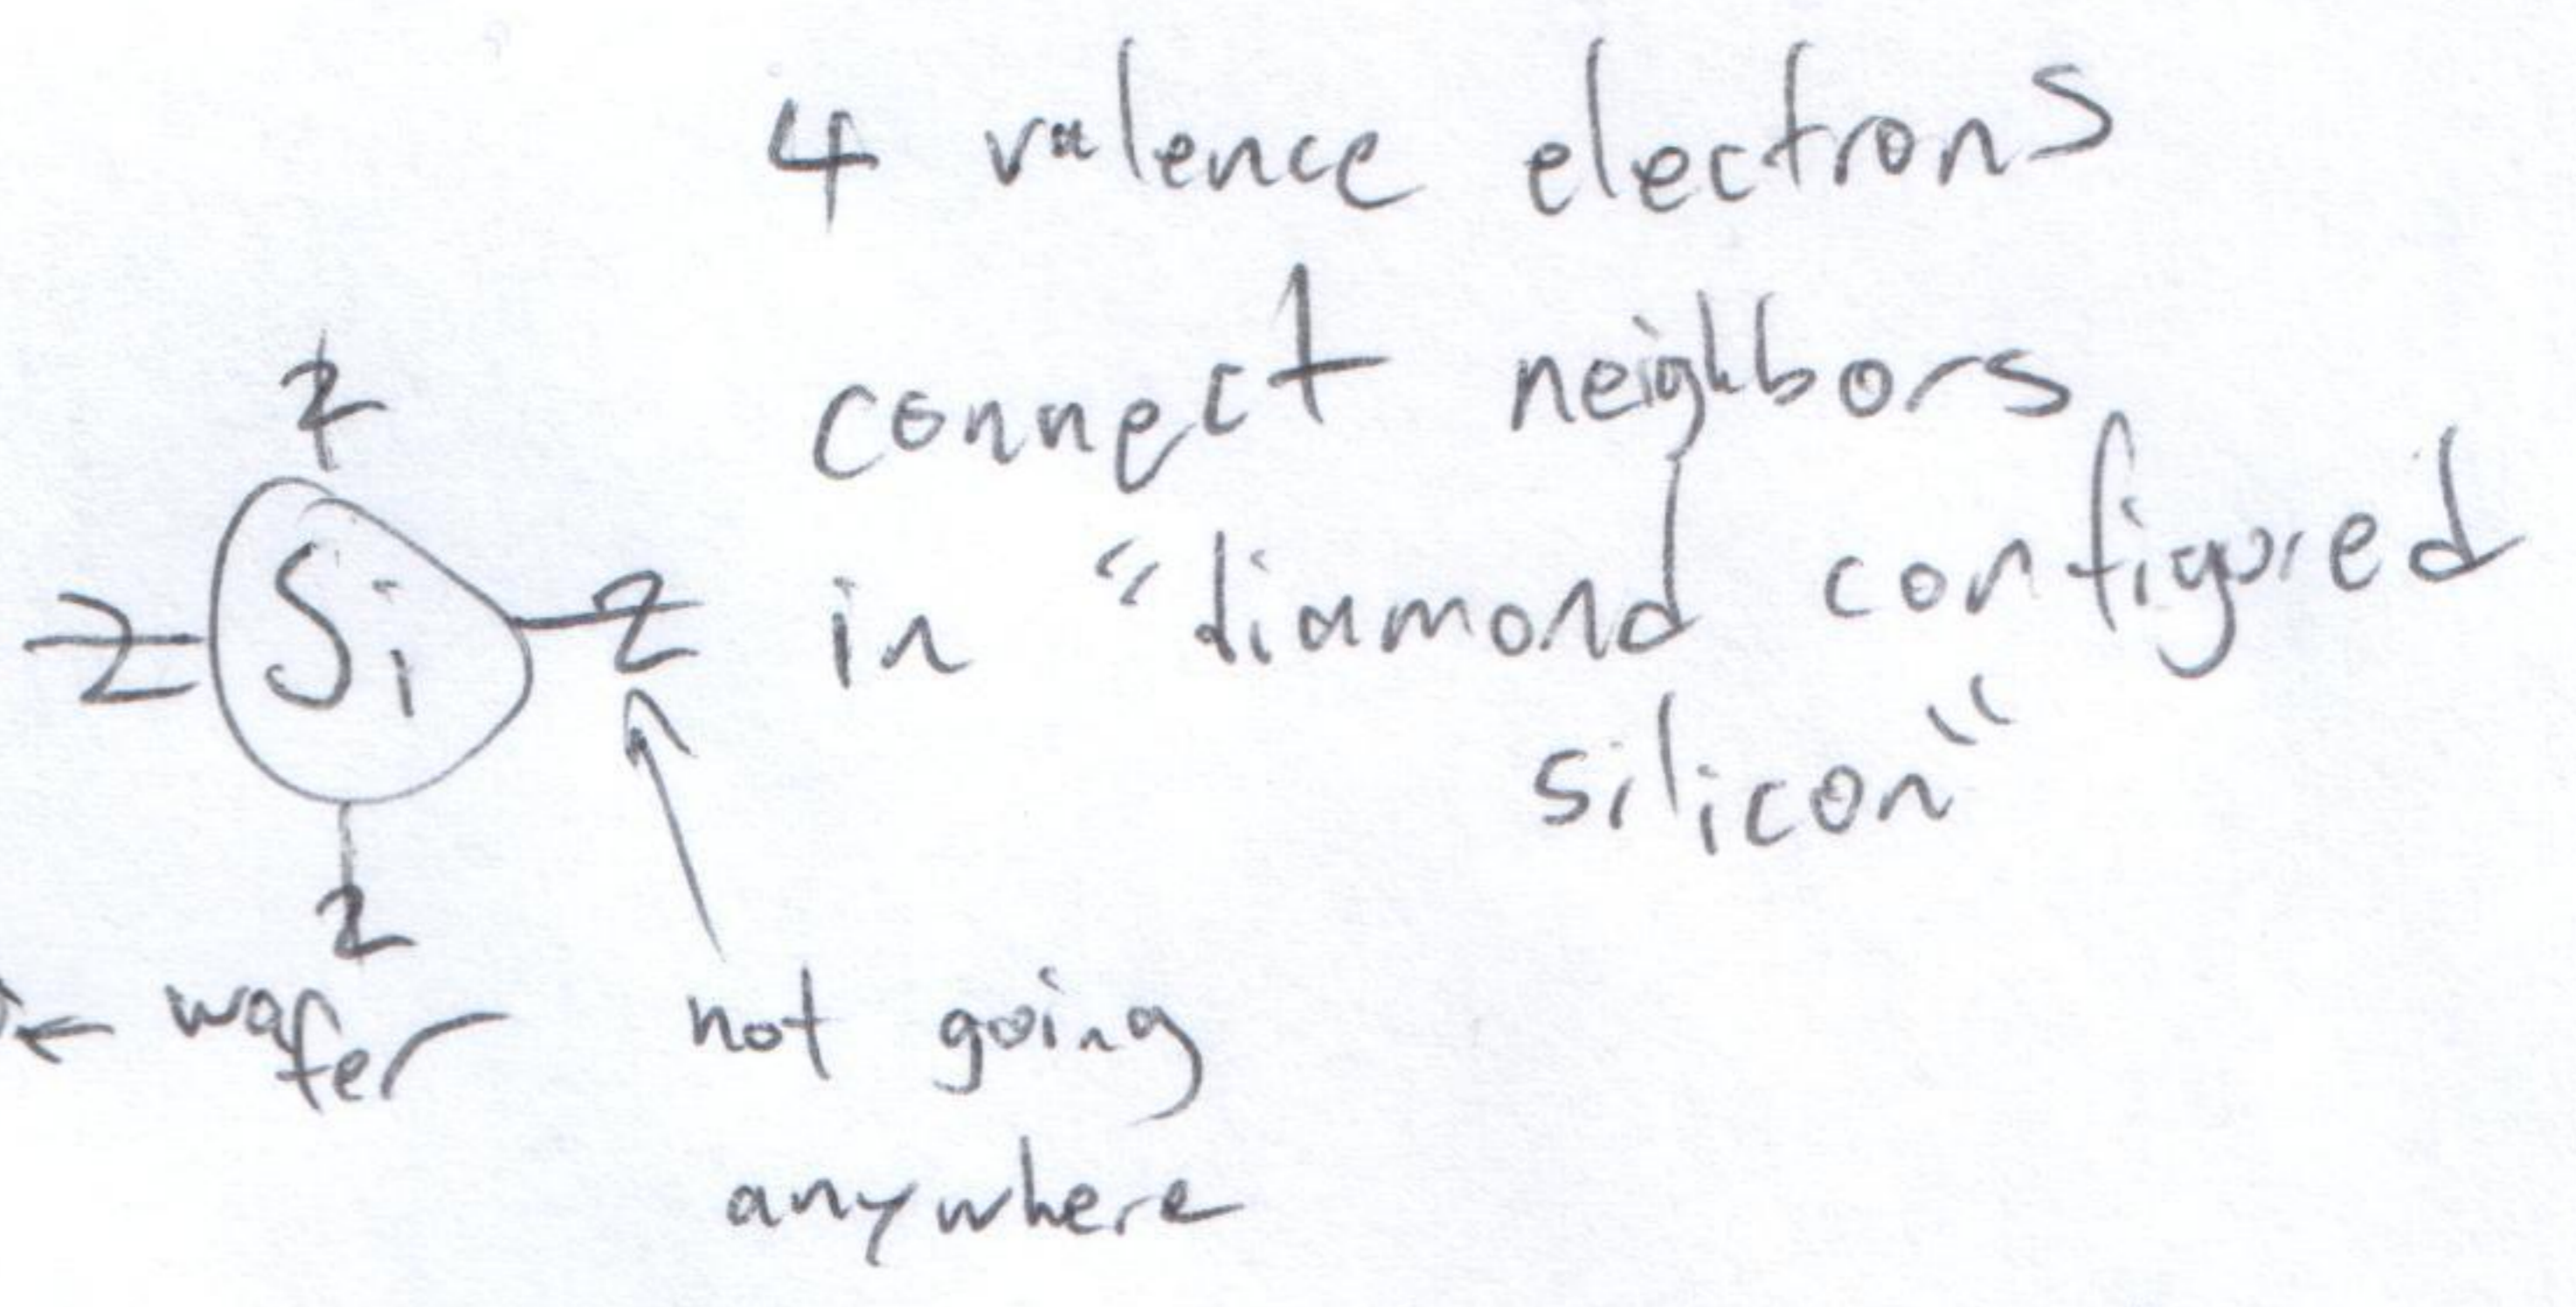 4 valence electrons
connect neighbors
in "diamond configured
silicon"
2
2 Si 2
2
← wafer
not going
anywhere